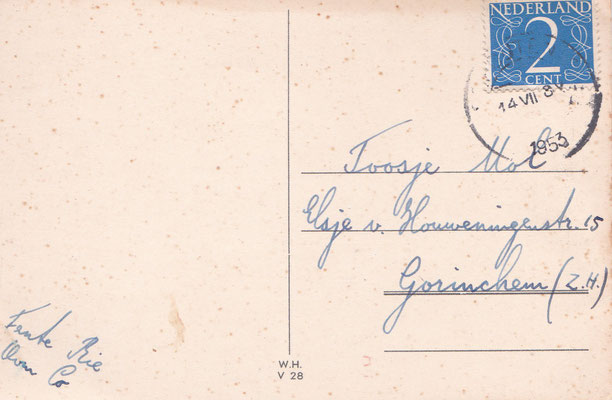 NEDERLAND
2
CENT
14 VII
1953
Toosje Mol
Elsje v. Houweningenstr. 15
Gorinchem (Z.H.)
Tante Rie
Oom Co
W.H.
V 28